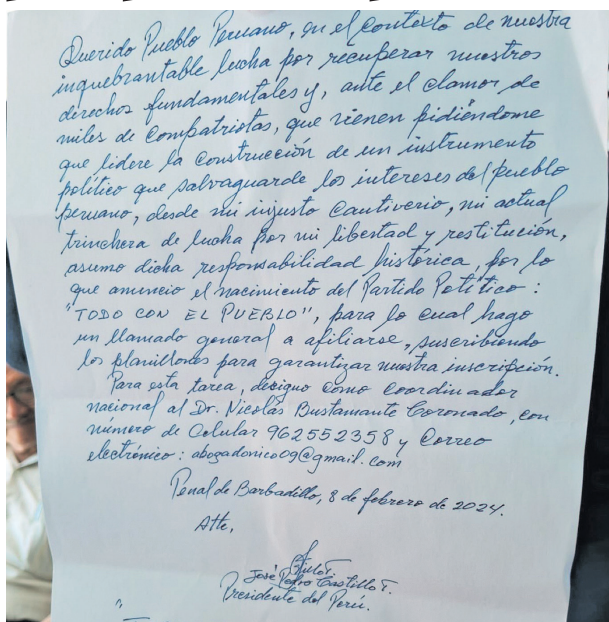 Querido Pueblo Peruano, en el contexto de nuestra
inquebrantable lucha por recuperar nuestros
derechos fundamentales y, ante el clamor de
miles de compatriotas, que vienen pidiéndome
que lidere la construcción de un instrumento
político que salvaguarde los intereses del pueblo
peruano, desde mi injusto cautiverio, mi actual
trinchera de lucha por mi libertad y restitución,
asumo dicha responsabilidad histórica, por lo
que anuncio el nacimiento del Partido Político:
"TODO CON EL PUEBLO", para lo cual hago
un llamado general a afiliarse, suscribiendo
los planillones para garantizar nuestra inscripción.
Para esta tarea, designo como coordinador
nacional al Dr. Nicolás Bustamante Coronado, con
número de Celular 962552358 y Correo
electrónico: abogadonico09@gmail.com
Penal de Barbadillo, 8 de febrero de 2024.
Atte,
José Pedro Castillo T.
Presidente del Perú.